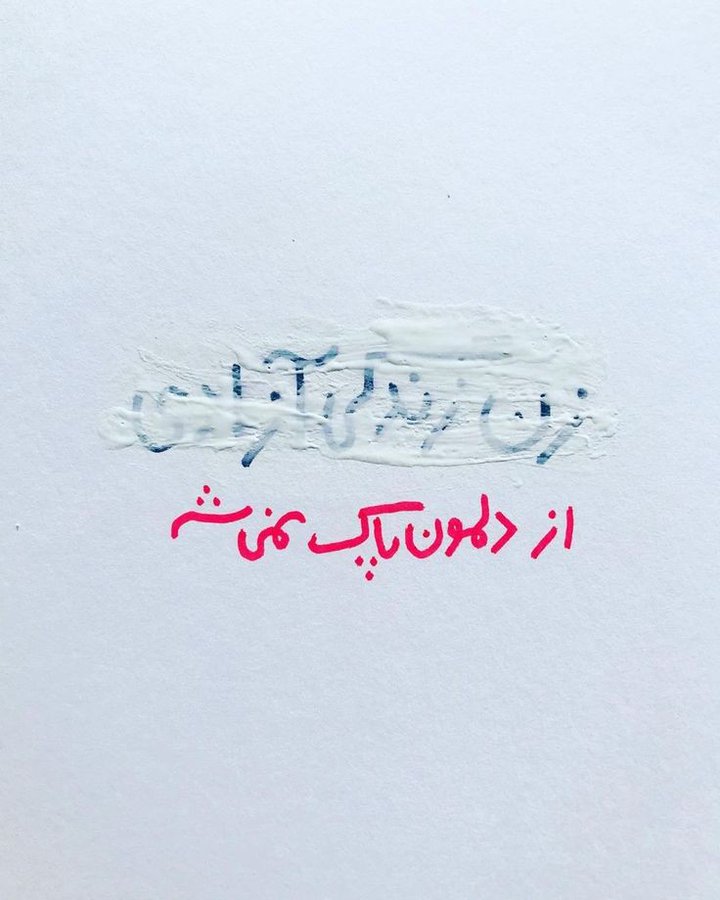 زن زندگی آزادی
از دلمون پاک نمی‌شه